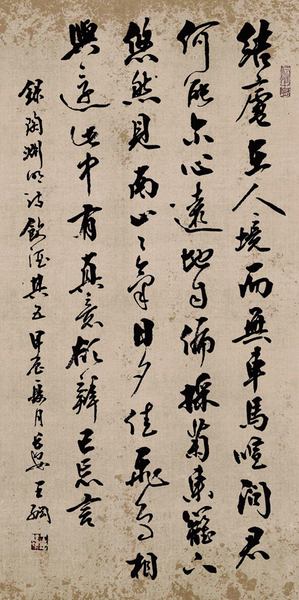 結廬在人境而無車馬喧問君
何能尔心遠地自偏採菊東籬下
悠然見南山〻氣日夕佳飛鳥相
與還此中有真意欲辨已忘言
録陶渊明诗飲酒其五甲辰夏月王